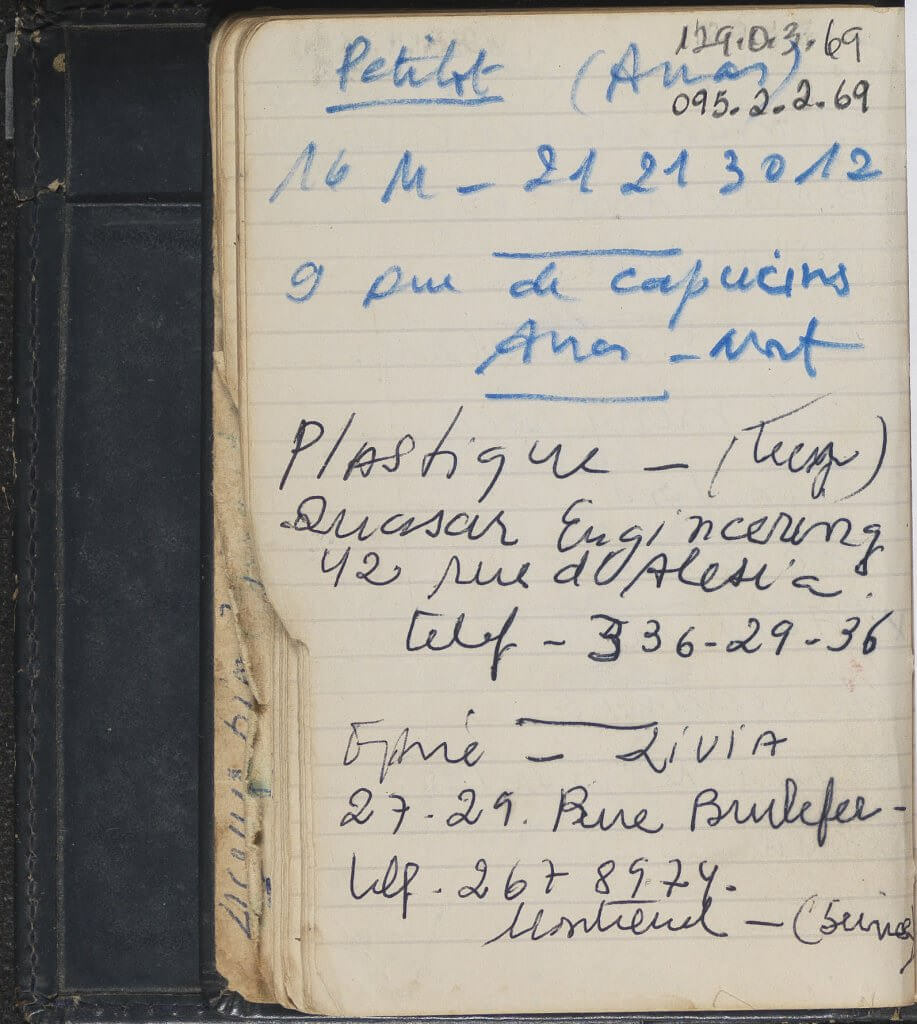 129.0.3.69
Petitot (Arras)
095.2.2.69
16 M - 21 21 30 12
9 rue de capucins
Arras - Nort
Plastique -
Quasar Engineering
42 rue d'Alesia.
Telef - 336-29-36
- LIVIA
27-29. Rue Brulefer -
telf. 267 8974.
- (Seine)